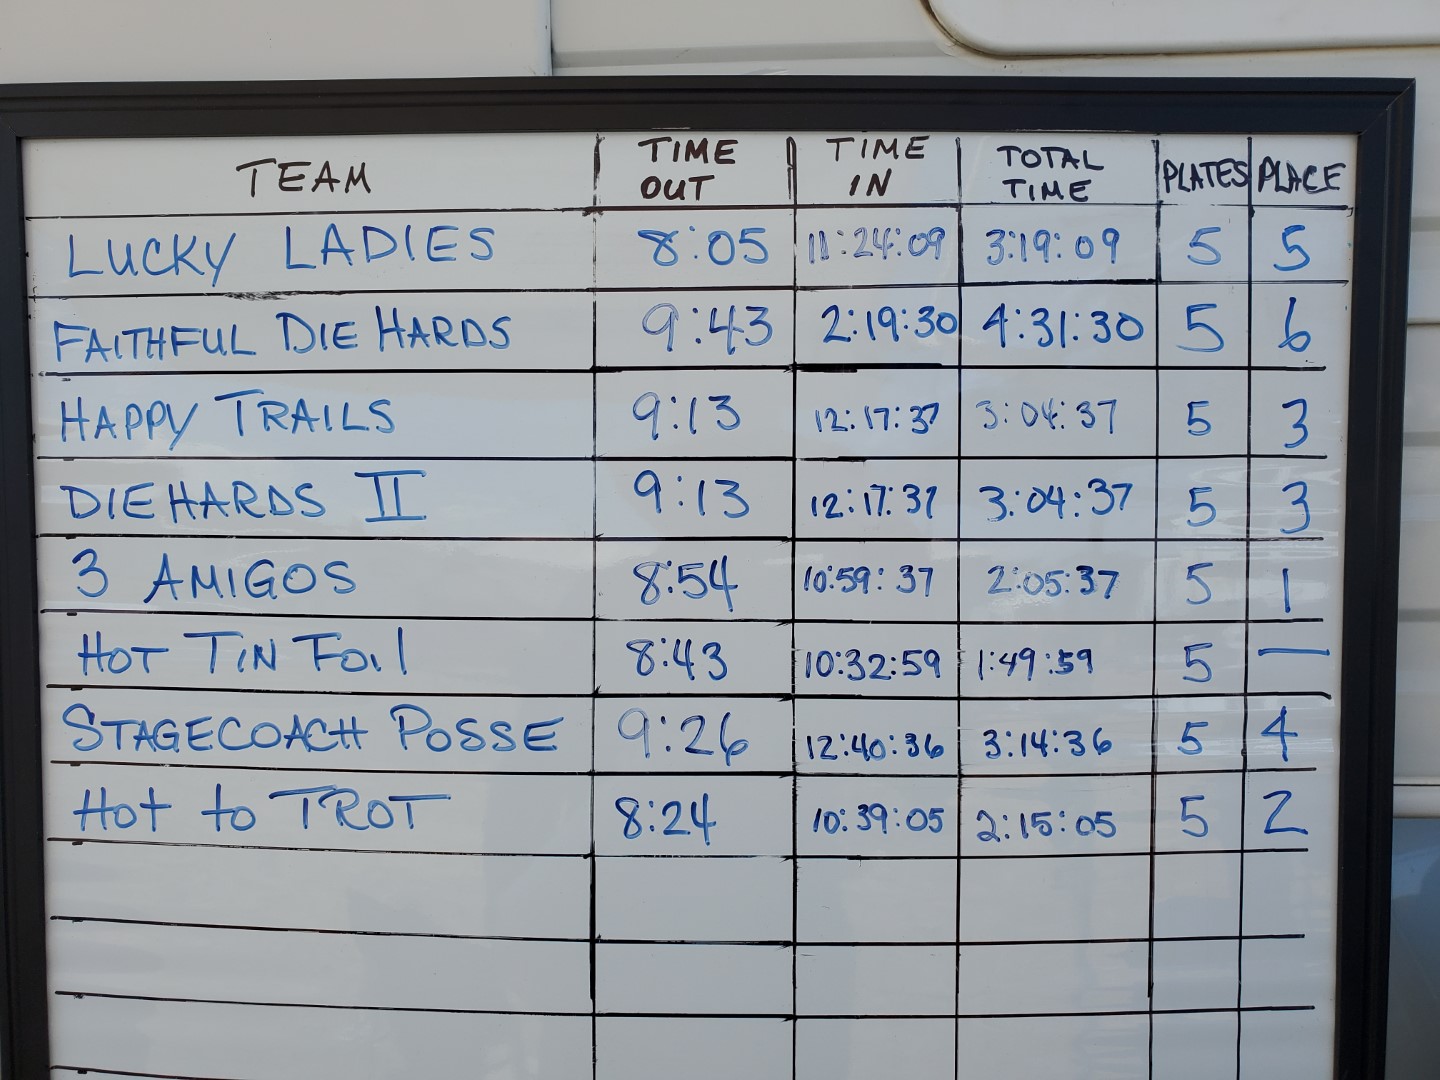 TEAM TIME OUT TIME IN TOTAL TIME PLATES PLACE
LUCKY LADIES 8:05 11:24:09 3:19:09 5 5
FAITHFUL DIE HARDS 9:43 2:19:30 4:31:30 5 6
HAPPY TRAILS 9:13 12:17:37 3:04:37 5 3
DIE HARDS II 9:13 12:17:37 3:04:37 5 3
3 AMIGOS 8:54 10:59:37 2:05:37 5 1
HOT TIN FOIL 8:43 10:32:59 1:49:59 5 —
STAGECOACH POSSE 9:26 12:40:36 3:14:36 5 4
Hot to TROT 8:24 10:39:05 2:15:05 5 2